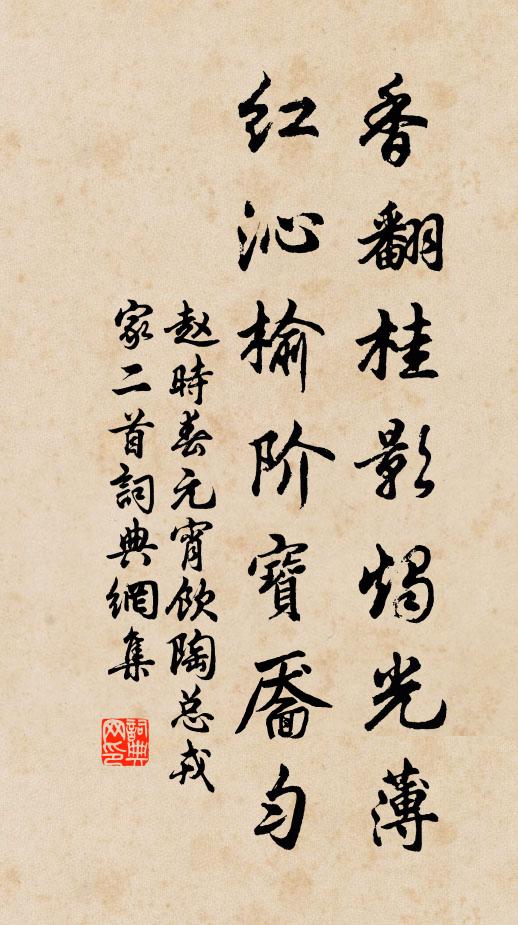 香翻桂影燭光薄
紅沁榆阶寶靨勻
赵時春元宵飲陶总戎
家二首詞典網集
詞典
网印